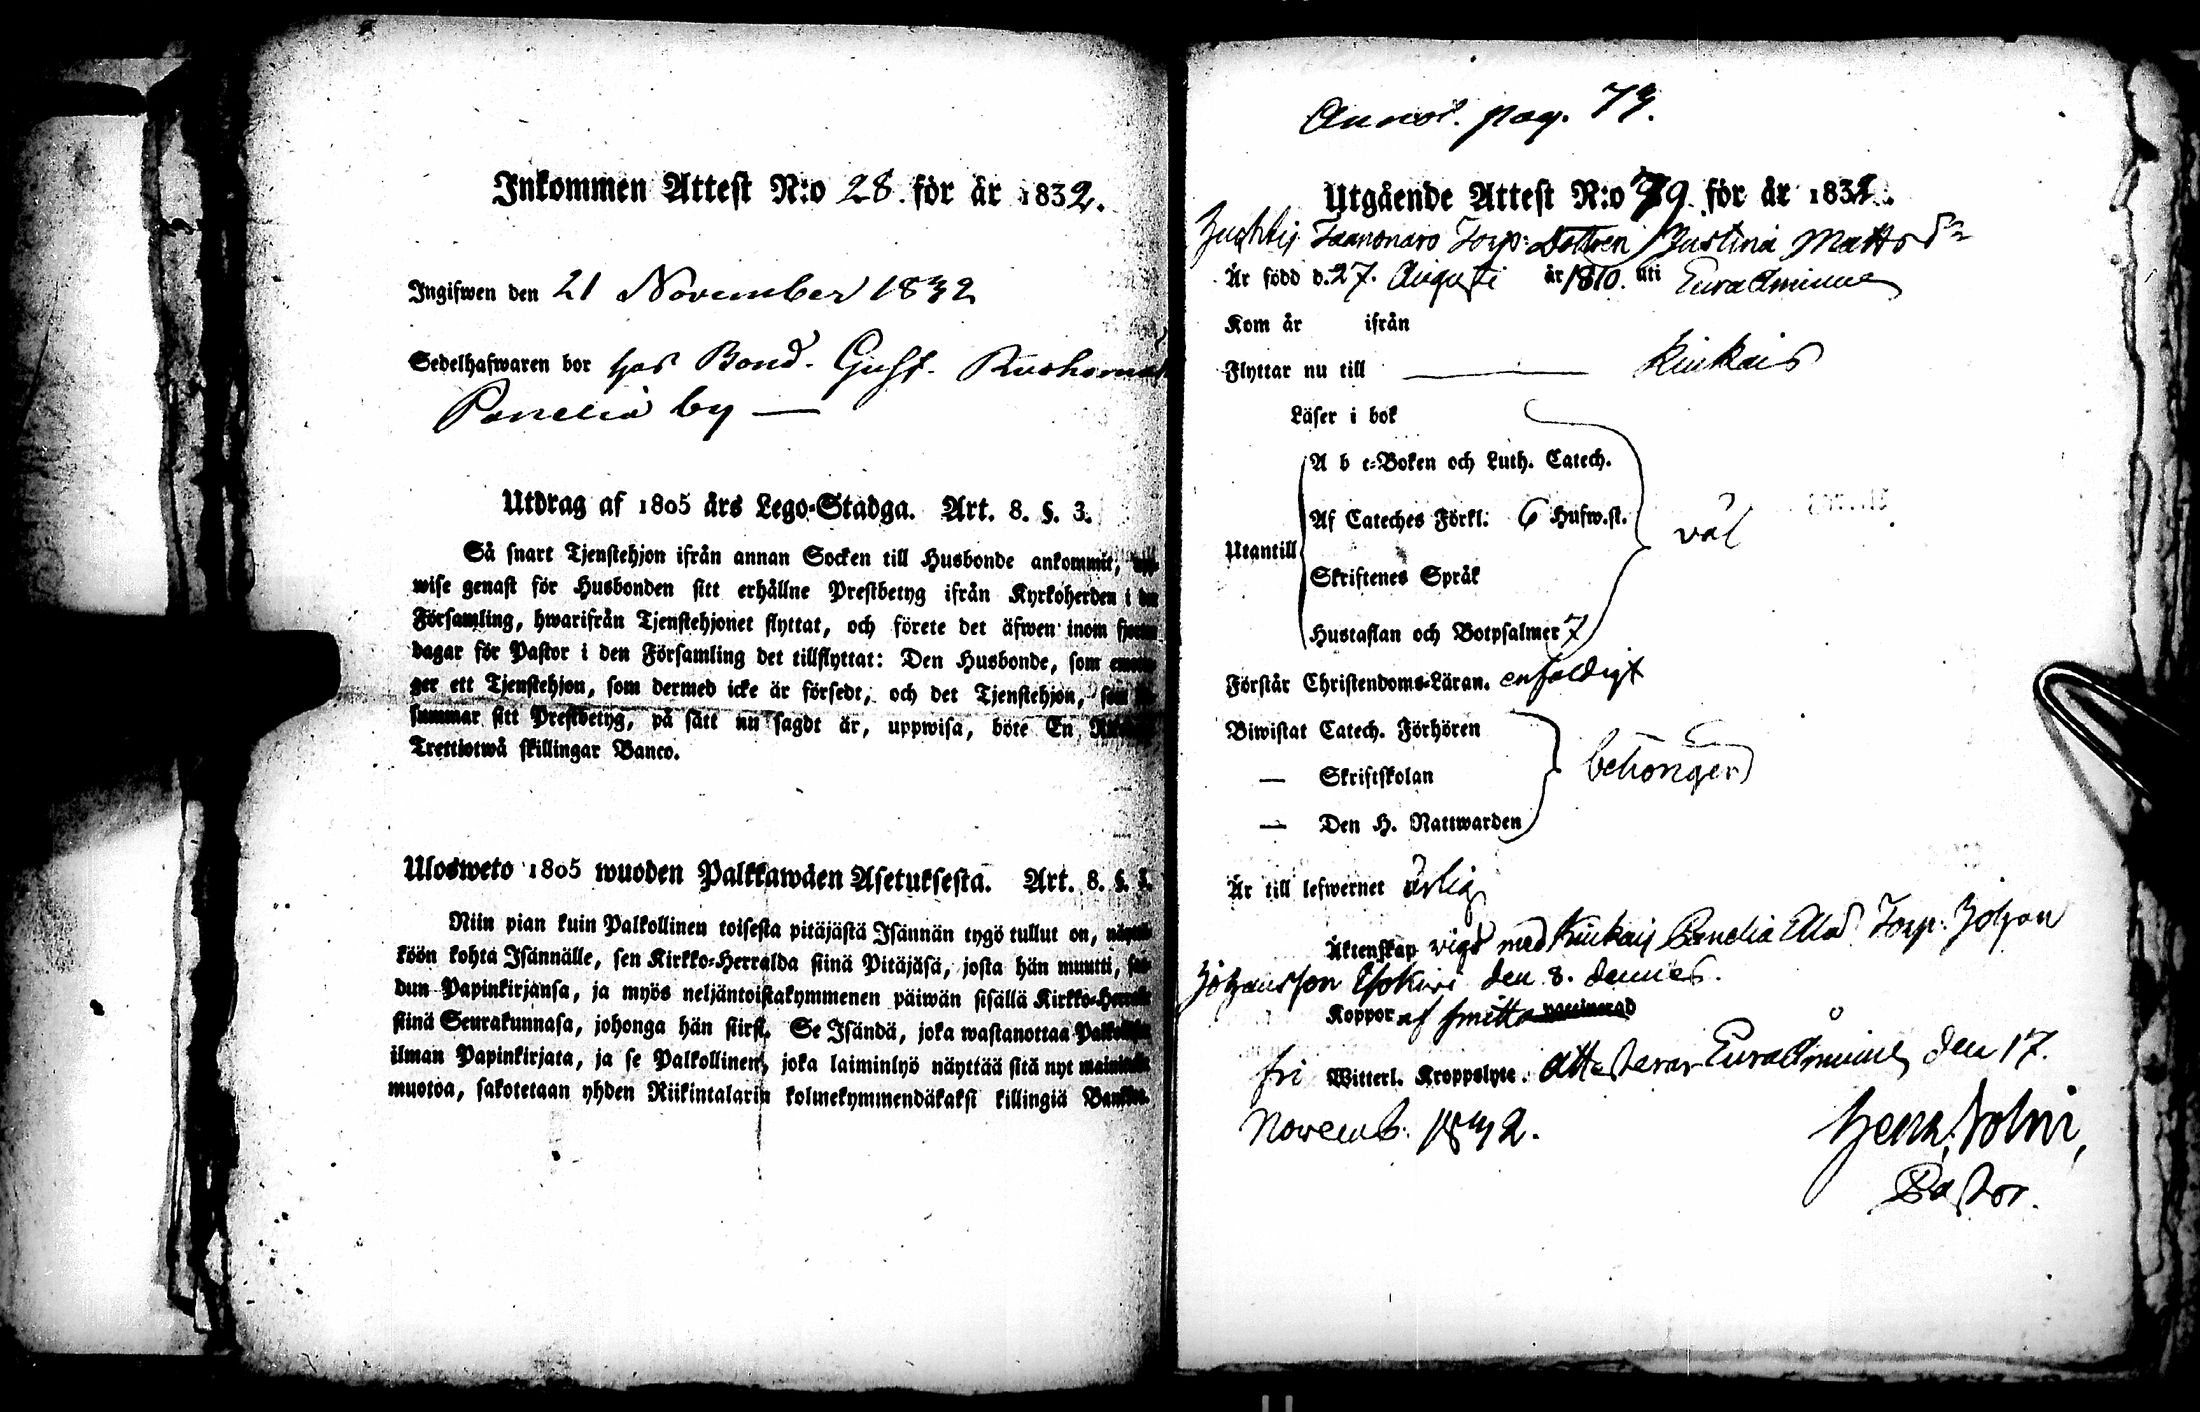 Inkommen Attest N:o 28. för år 1832.
Ingifwen den 21 November 1832
Sedelhafwaren bor hos Bond. Gust.
Panelia by —
Utdrag af 1805 års Lego-Stadga. Art. 8. §. 3.
Så snart Tjenstehjon ifrån annan Socken till Husbonde ankommit,
wise genast för Husbonden sitt erhållne Prestbetyg ifrån Kyrkoherden i
Församling, hwarifrån Tjenstehjonet flyttat, och förete det äfwen inom
dagar för Pastor i den Församling det tillflyttat: Den Husbonde, som
ger ett Tjenstehjon, som dermed icke är försedt, och det Tjenstehjon,
summar sitt Prestbetyg, på sätt nu sagdt är, uppwisa, böte En
Trettiotwå skillingar Banco.
Ulosweto 1805 wuoden Palkkawäen Asetuksesta. Art. 8. §. 3.
Niin pian kuin Palkollinen toisesta pitäjästä Isännän tygö tullut on,
köön kohta Isännälle, sen Kirkko-Herralda siinä Pitäjäsä, josta hän muutti,
dun Papinkirjansa, ja myös neljäntoistakymmenen päiwän sisällä Kirkko-
siinä Seurakunnasa, johonga hän siirsi. Se Isändä, joka wastanottaa
ilman Papinkirjata, ja se Palkollinen, joka laiminlyö näyttää sitä nyt
muotoa, sakotetaan yhden Riikintalarin kolmekymmendäkaksi killingiä
Annot. pag. 73.
Utgående Attest N:o 79 för år 1832.
Torp: Dottren Justina Matts Dr
Är född d. 27. Augusti år 1810. uti Euraåminne
Kom år ifrån
Flyttar nu till — Kiukais
Läser i bok
A b c-Boken och Luth. Catech.
Af Cateches Förkl: 6 Hufw.st. väl
Utantill
Skriftenes Språk
Hustaflan och Botpsalmer 7
Förstår Christendoms-Läran. enfaldigt
Biwistat Catech. Förhören
— Skriftskolan behörigen
— Den H. Nattwarden
Är till lefwernet ärlig
Äktenskap vigd med Kiukais Panelia Torp: Johan
Johansson den 8. dennes.
Koppor af smitta vaccinerad
fri Witterl. Kroppslyte. Attesterar Euraåminne den 17.
Novemb: 1832.
Pastor.